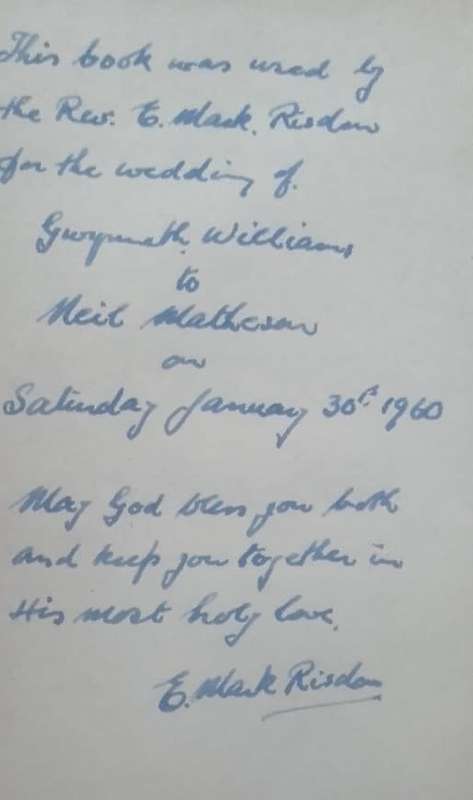 This book was used by
the Rev. E. Mark. Risdon
for the wedding of.
Gwynneth Williams
to
Neil Matheson
on
Saturday January 30th 1960
May God bless you both
and keep you together in
His most holy love.
E. Mark Risdon